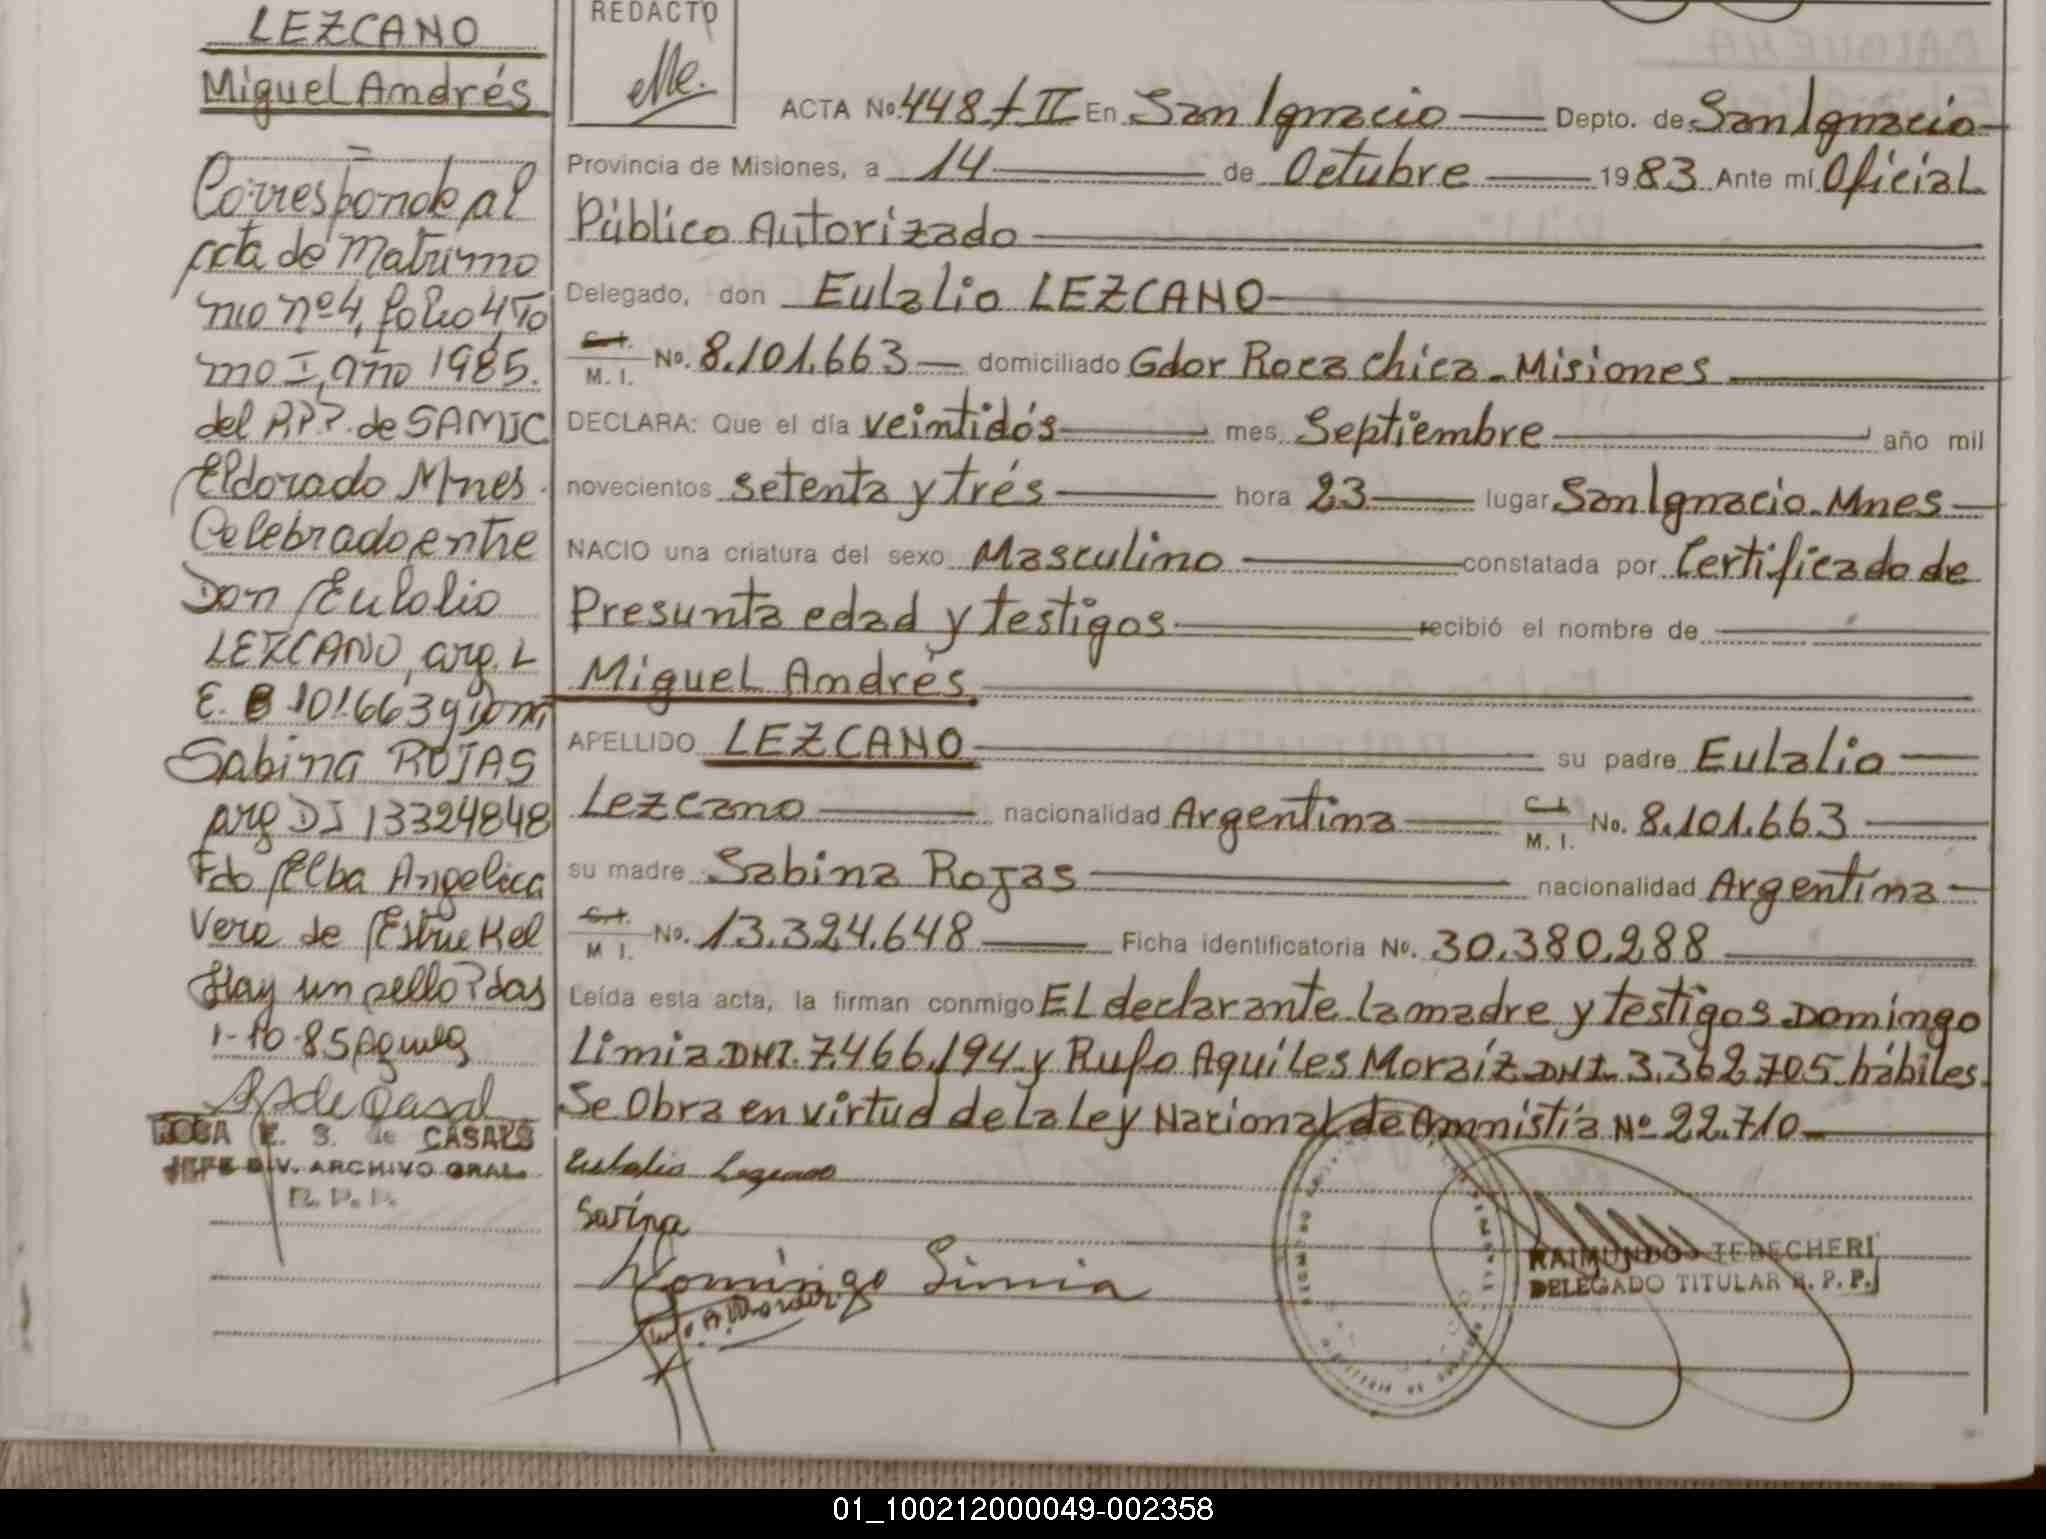 LEZCANO
Miguel Andrés
Corresponde al
acta de Matrimo
nio nº 4, folio 4, To
mo I, año 1985.
del R.P.P. de SAMIC
Eldorado Mnes.
Celebrado entre
Don Eulalio
LEZCANO, arg. L
E. 8 101.663 y Doña
Sabina ROJAS
arg DJ 13324848
Fdo Elba Angelica
Vera de
Hay un sello Pdas
1-10-85
ROSA E. S. de CASALS
JEFE DIV. ARCHIVO GRAL.
R. P. P.
REDACTO
ACTA No. 448 f II En San Ignacio Depto. de San Ignacio
Provincia de Misiones, a 14 de Octubre 1983 Ante mí Oficial
Público Autorizado
Delegado, don Eulalio LEZCANO
C.I. M. I. No. 8.101.663 domiciliado Gdor Roca chica. Misiones
DECLARA: Que el día veintidós mes Septiembre año mil
novecientos setenta y trés hora 23 lugar San Ignacio. Mnes
NACIO una criatura del sexo Masculino constatada por Certificado de
Presunta edad y testigos recibió el nombre de
Miguel Andrés
APELLIDO LEZCANO su padre Eulalio
Lezcano nacionalidad Argentina C.I. M. I. No. 8.101.663
su madre Sabina Rojas nacionalidad Argentina
C.I. M I. No. 13.324.648 Ficha identificatoria No. 30.380.288
Leída esta acta, la firman conmigo EL declarante la madre y testigos Domingo
Limia DNI. 7.466.194 y Rufo Aquiles Moraíz DNI. 3.362.705 hábiles
Se Obra en virtud de la Ley Nacional de Amnistía Nº 22.710
Eulalio Lezcano
Savina
Domingo Limia
RAIMUNDO TEBECHERI
DELEGADO TITULAR R. P. P.
01_100212000049-002358